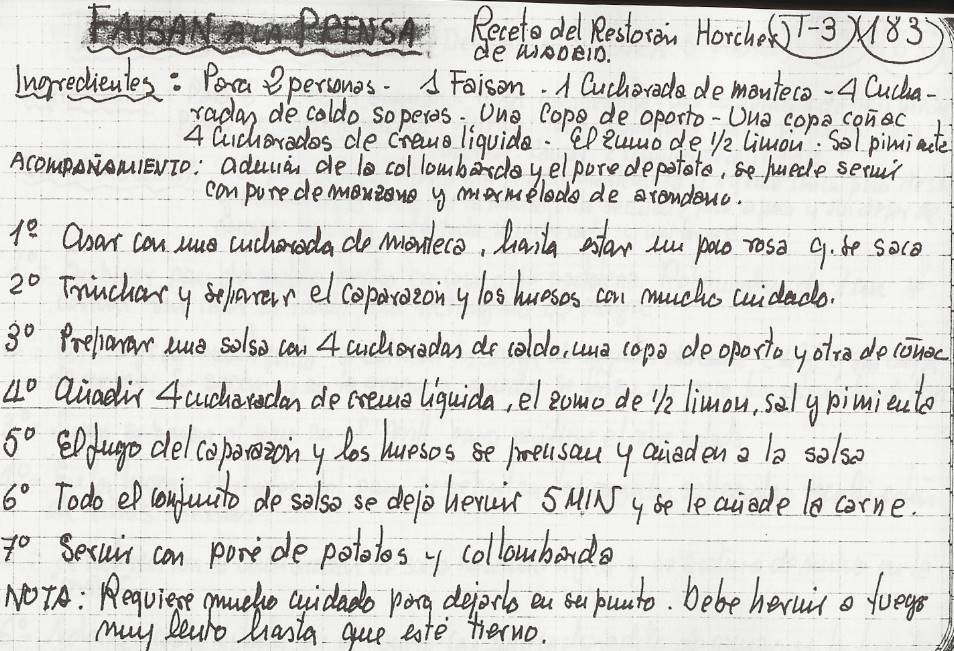 FAISAN A LA PRENSA Receta del Restorán Horcher (II-3) (183)
de MADRID.
Ingredientes: Para 2 personas - 1 Faisan - 1 Cucharada de manteca - 4 Cucha-
radas de caldo soperas - Una copa de oporto - Una copa coñac
4 Cucharadas de crema liquida - El zumo de 1/2 Limón - Sal pimienta
ACOMPAÑAMIENTO: además de la col lombarda y el pore de patata, se puede servir
con pure de manzana y mermelada de arandano.
1º Asar con una cucharada de manteca, hasta estar un poco rosa q. se saca
2º Trinchar y separar el caparazón y los huesos con mucho cuidado.
3º Preparar una salsa con 4 cucharadas de caldo, una copa de oporto y otra de coñac
4º Añadir 4 cucharadas de crema líquida, el zumo de 1/2 limon, sal y pimienta
5º El jugo del caparazón y los huesos se prensan y añaden a la salsa
6º Todo el conjunto de salsa se deja hervir 5 MIN y se le añade la carne.
7º Servir con poré de patatas y col lombarda
NOTA: Requiere mucho cuidado para dejarlo en su punto. Debe hervir a fuego
muy lento hasta que esté tierno.